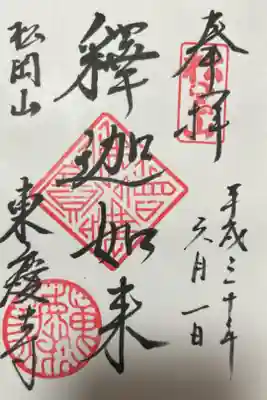 奉拝
平成三十年
六月一日
釋迦如来
松岡山
東慶寺